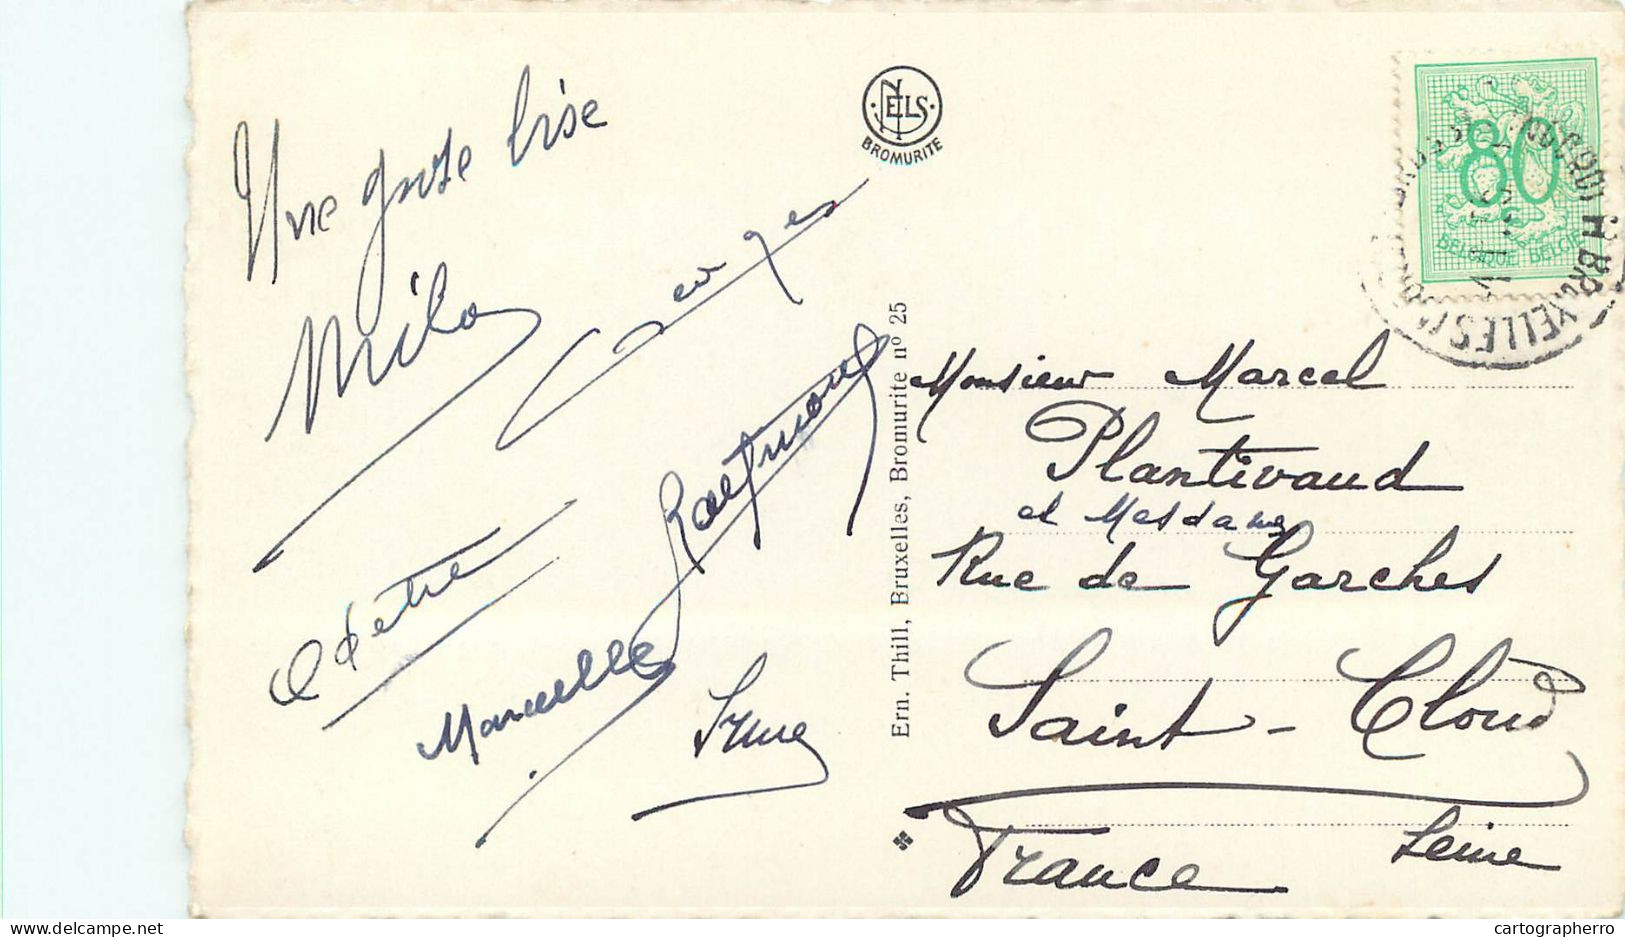 Une grosse bise
Milo
Georges
Odette
Raymond
Marcelle
Irène
NELS
BROMURITE
Ern. Thill, Bruxelles, Bromurite nº 25
80
BELGIQUE BELGIE
Monsieur Marcel
Plantivaud
et Mesdames
Rue de Garches
Saint-Cloud
Seine
France
www.delcampe.net
cartographerro